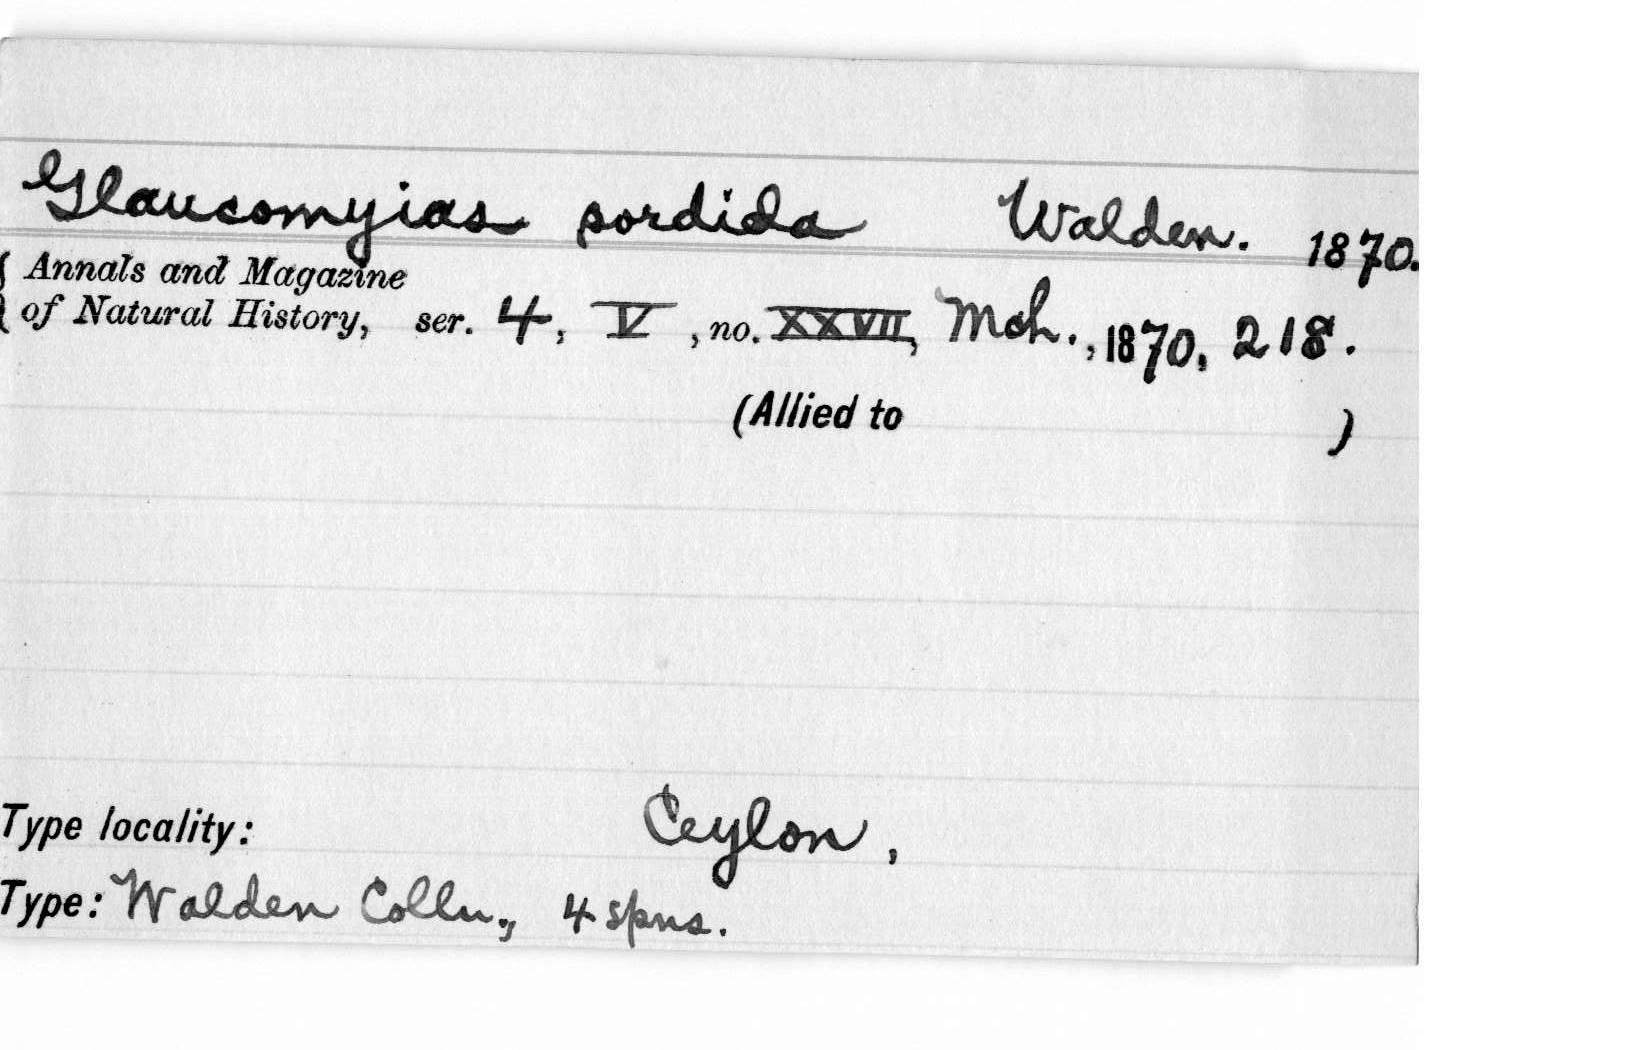 Glaucomyias sordida Walden. 1870.
{ Annals and Magazine
of Natural History, ser. 4, V, no. XXVII, Mch., 1870, 218.
(Allied to )
Type locality: Ceylon,
Type: Walden Colln., 4 spns.